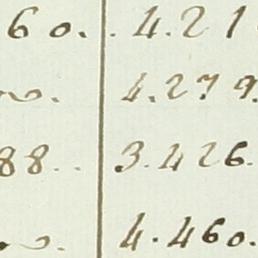 60. . 4.21
~. 4.279.
88. . 3.426.
~. 4.460.